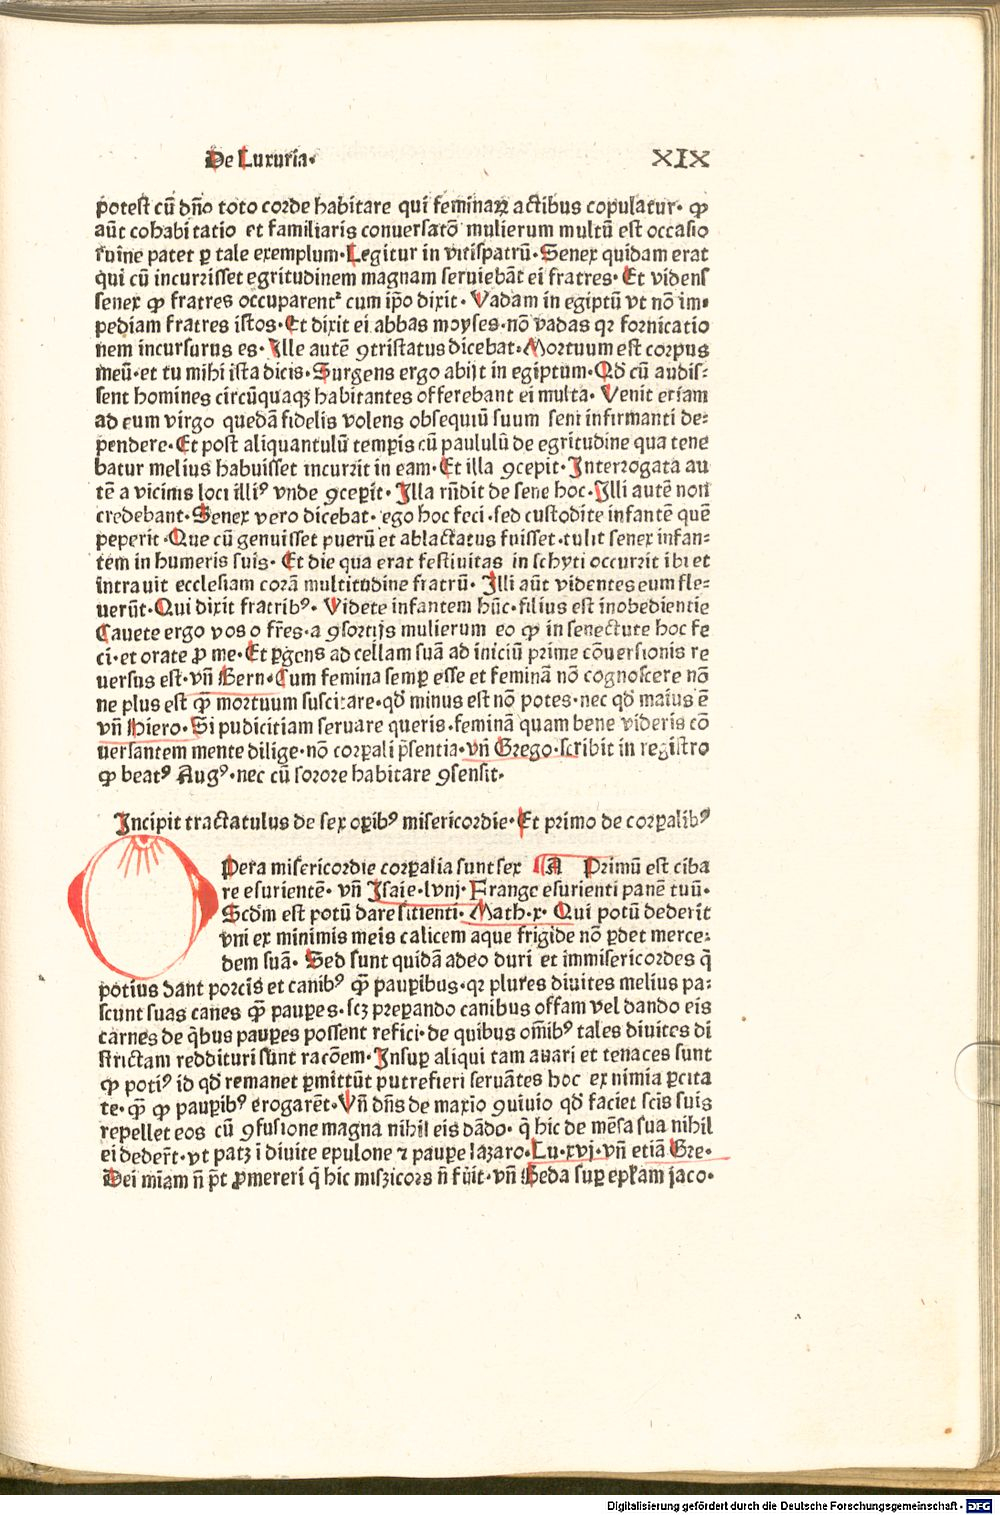 De Luxuria.
XIX
potest cū dn̄o toto corde habitare qui feminaꝝ actibus copulatur. ꝙ
aūt cohabitatio et familiaris conuersatō mulierum multū est occasio
ruine patet ꝑ tale exemplum. Legitur in vitispatrū. Senex quidam erat
qui cū incurrisset egritudinem magnam seruiebāt ei fratres. Et videns
senex ꝙ fratres occuparent᷑ cum ip̄o dixit. Vadam in egiptū vt nō im⸗
pediam fratres istos. Et dixit ei abbas moyses. nō vadas qꝛ fornicatio
nem incursurus es. Ille autē ꝯtristatus dicebat. Mortuum est corpus
meū. et tu mihi ista dicis. Surgens ergo abijt in egiptum. Qd̄ cū audis⸗
sent homines circūquaqꝫ habitantes offerebant ei multa. Venit etiam
ad eum virgo quedā fidelis volens obsequiū suum seni infirmanti de⸗
pendere. Et post aliquantulū temꝑis cū paululū de egritudine qua tene
batur melius habuisset incurrit in eam. Et illa ꝯcepit. Interrogata au
tē a vicinis loci illiꝰ vnde ꝯceꝑit. Illa rn̄dit de sene hoc. Illi autē non
credebant. Senex vero dicebat. ego hoc feci. sed custodite infantē quē
peperit. Que cū genuisset puerū et ablactatus fuisset. tulit senex infan⸗
tem in humeris suis. Et die qua erat festiuitas in schyti occurrit ibi et
intrauit ecclesiam corā multitudine fratrū. Illi aūt videntes eum fle⸗
uerūt. Qui dixit fratribꝰ. Videte infantem hūc. filius est inobedientie
Cauete ergo vos o fr̄es. a ꝯsortijs mulierum eo ꝙ in senectute hoc fe
ci. et orate ꝓ me. Et ꝑgens ad cellam suā ad iniciū prime cōuersionis re
uersus est. vn̄ Bern. Cum femina semꝑ esse et feminā nō cognoscere nō
ne plus est ꝙ̄ mortuum suscitare. qd̄ minus est nō potes. nec qd̄ maius ē
vn̄ Hiero. Si pudicitiam seruare queris. feminā quam bene videris cō
uersantem mente dilige. nō corꝑali p̄sentia. vn̄ Grego. scribit in registro
ꝙ beatꝰ Augꝰ. nec cū sorore habitare ꝯsensit.
Incipit tractatulus de sex oꝑibꝰ misericordie. Et primo de corꝑalibꝰ
Pera misericordie corꝑalia sunt sex A Primū est ciba
re esurientē. vn̄ Isaie. lvnj. Frange esurienti panē tuū.
Scd̄m est potū dare sitienti. Math. x. Qui potū dederit
vni ex minimis meis calicem aque frigide nō ꝑdet merce⸗
dem suā. Sed sunt quidā adeo duri et immisericordes q̄
potius dant porcis et canibꝰ ꝙ̄ pauꝑibus. qꝛ plures diuites melius pa⸗
scunt suas canes ꝙ̄ pauꝑes. scꝫ preparando canibus offam vel dando eis
carnes de q̄bus pauꝑes possent refici. de quibus om̄ibꝰ tales diuites di
strictam reddituri sūnt racōem. Insuꝑ aliqui tam auari et tenaces sunt
ꝙ potiꝰ id qd̄ remanet ꝑmittūt putrefieri seruātes hoc ex nimia ꝑcita
te. ꝙ̄ ꝙ pauꝑibꝰ erogarēt. Vn̄ dn̄s de maxīo ꝯuiuio qd̄ faciet scīs suis
repellet eos cū ꝯfusione magna nihil eis dādo. q̄ hic de mēsa sua nihil
ei dedert̄. vt patꝫ ī diuite epulone ⁊ pauꝑe lazaro. Lu. xvj. vn̄ etiā Gre.
Dei mīam n̄ pt̄ ꝓmereri q̄ hic misꝫicors n̄ fūit. vn̄ Beda suꝑ ep̄lam jaco.
Digitalisierung gefördert durch die Deutsche Forschungsgemeinschaft - DFG